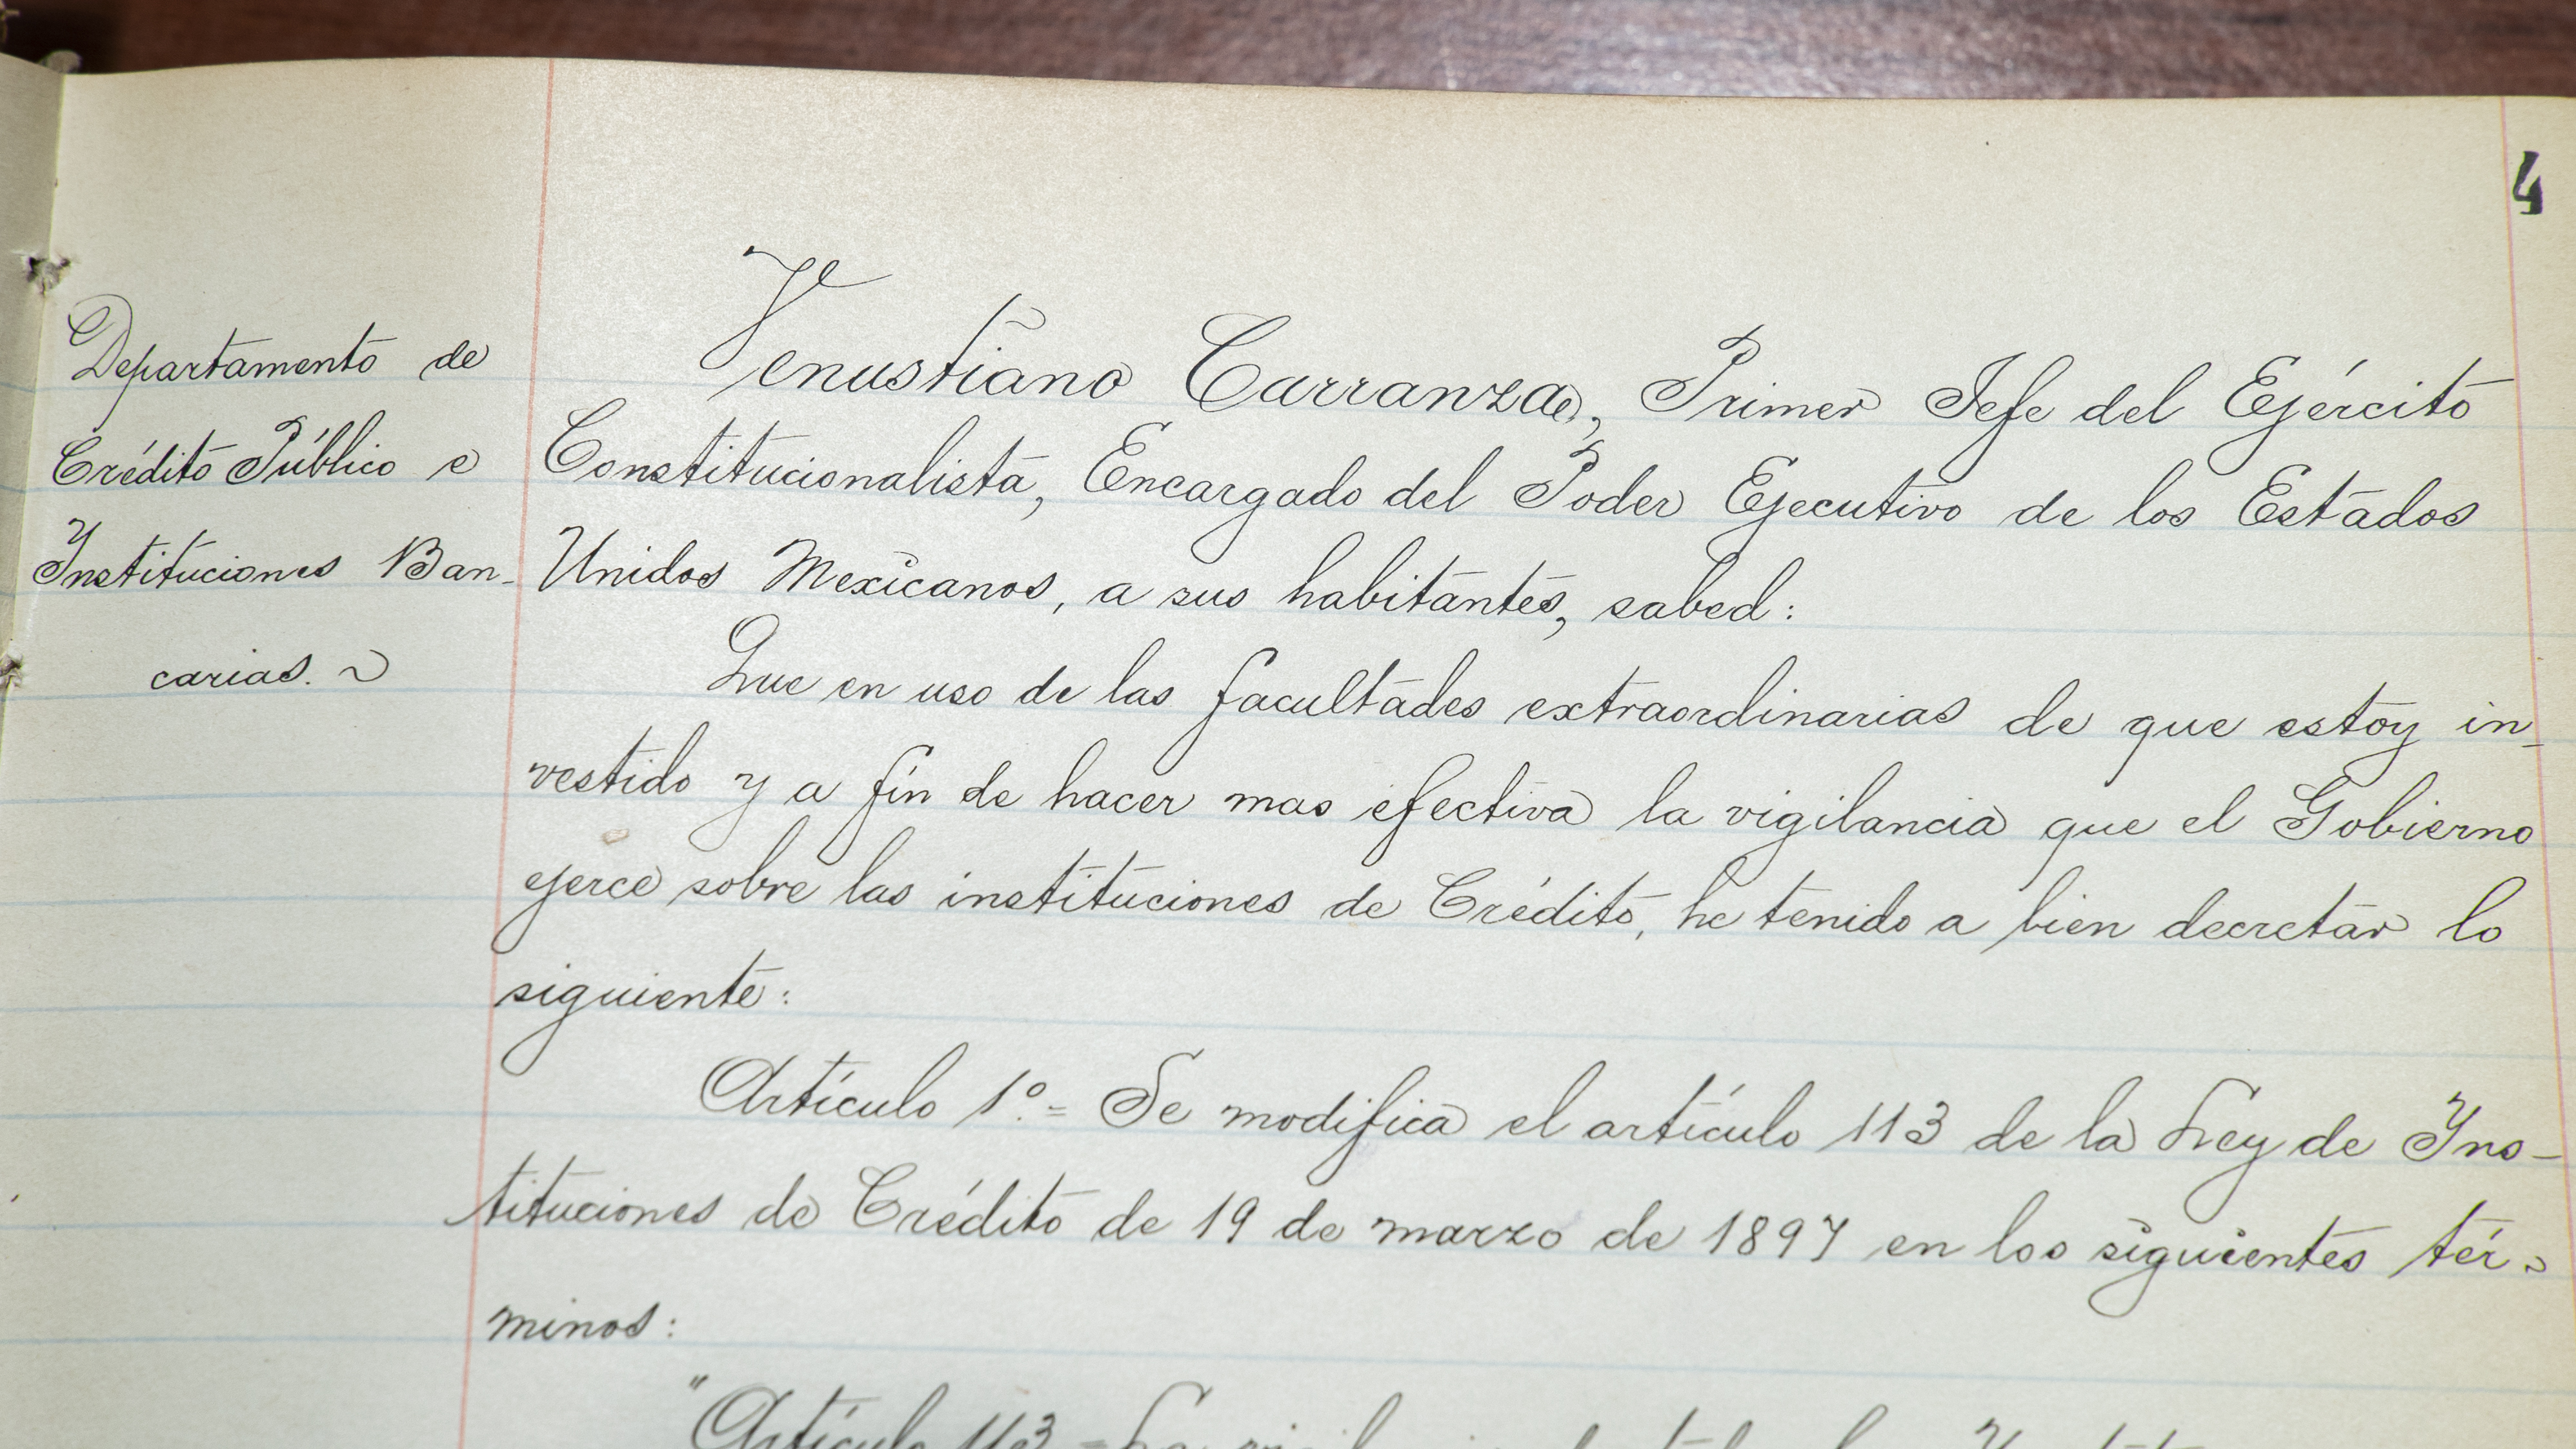 4
Departamento de
Crédito Público e
Instituciones Ban-
carias.
Venustiano Carranza, Primer Jefe del Ejército
Constitucionalista, Encargado del Poder Ejecutivo de los Estados
Unidos Mexicanos, a sus habitantes, sabed:
Que en uso de las facultades extraordinarias de que estoy in-
vestido y a fin de hacer mas efectiva la vigilancia que el Gobierno
ejerce sobre las instituciones de Crédito, he tenido a bien decretar lo
siguiente:
Artículo 1º.= Se modifica el artículo 113 de la Ley de Ins-
tituciones de Crédito de 19 de marzo de 1897 en los siguientes tér-
minos:
"Artículo 113.=La